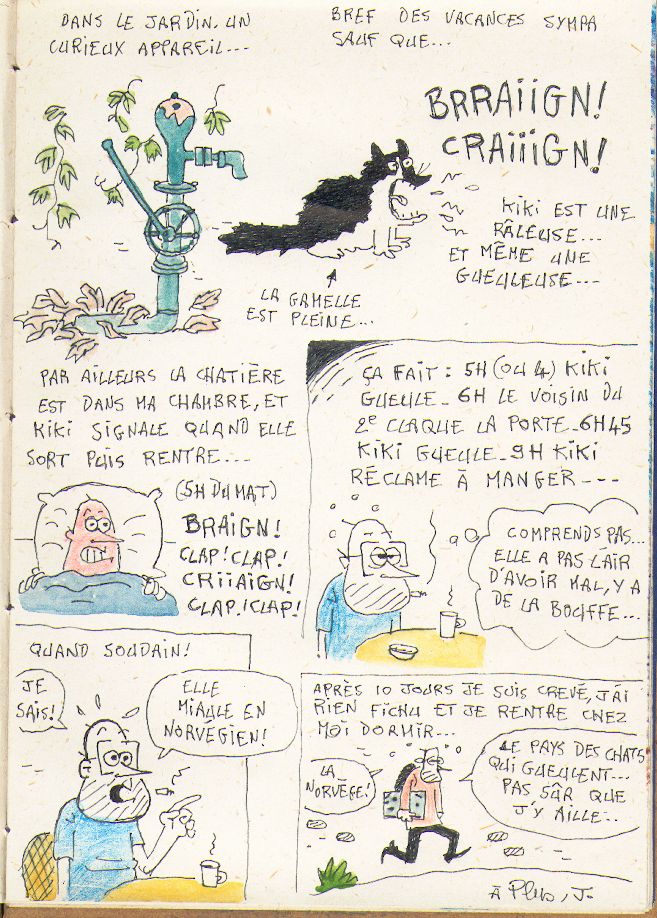 DANS LE JARDIN. UN
CURIEUX APPAREIL---
BREF DES VACANCES SYMPA
SAUF QUE...
BRRAIIGN!
CRAIIIGN!
KIKI EST UNE
RÂLEUSE...
ET MÊME UNE
GUEULEUSE---
LA GAMELLE
EST PLEINE...
PAR AILLEURS LA CHATIÈRE
EST DANS MA CHAMBRE, ET
KIKI SIGNALE QUAND ELLE
SORT PUIS RENTRE---
(5H DU MAT)
BRAIGN!
CLAP! CLAP!
CRIIAIGN!
CLAP! CLAP!
ÇA FAIT: 5H (OU 4) KIKI
GUEULE_ 6H LE VOISIN DU
2e CLAQUE LA PORTE_6H45
KIKI GUEULE_9H KIKI
RÉCLAME À MANGER---
COMPRENDS PAS...
ELLE A PAS L'AIR
D'AVOIR MAL, Y A
DE LA BOUFFE...
QUAND SOUDAIN!
JE
SAIS!
ELLE
MIAULE EN
NORVÉGIEN!
APRÈS 10 JOURS JE SUIS CREVÉ, J'AI
RIEN FICHU ET JE RENTRE CHEZ
MOI DORMIR...
LA
NORVÈGE!
LE PAYS DES CHATS
QUI GUEULENT...
PAS SÛR QUE
J'Y AILLE...
À Plus, J.